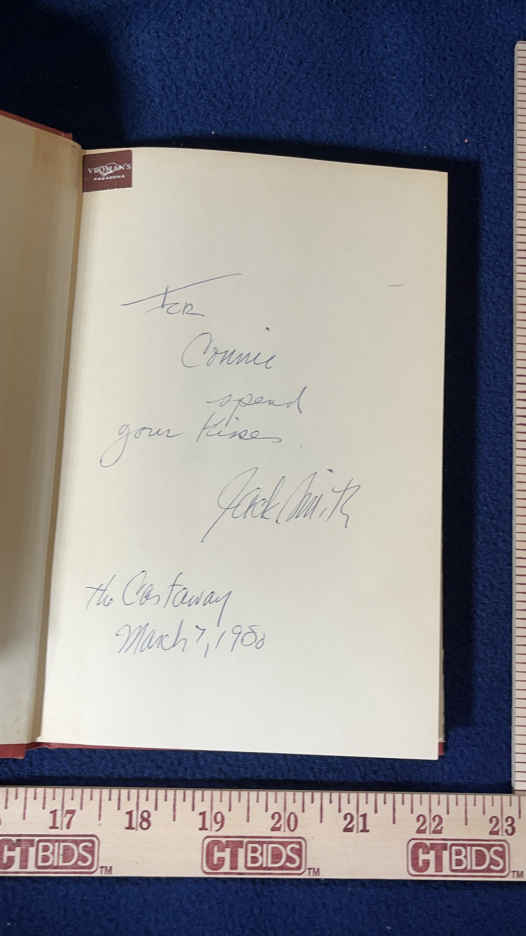 VROMAN'S
PASADENA
For
Connie
spend
your kisses
Jack Smith
the Castaway
March 7, 1980
17 18 19 20 21 22 23
CTBIDS TM CTBIDS TM CTBIDS TM